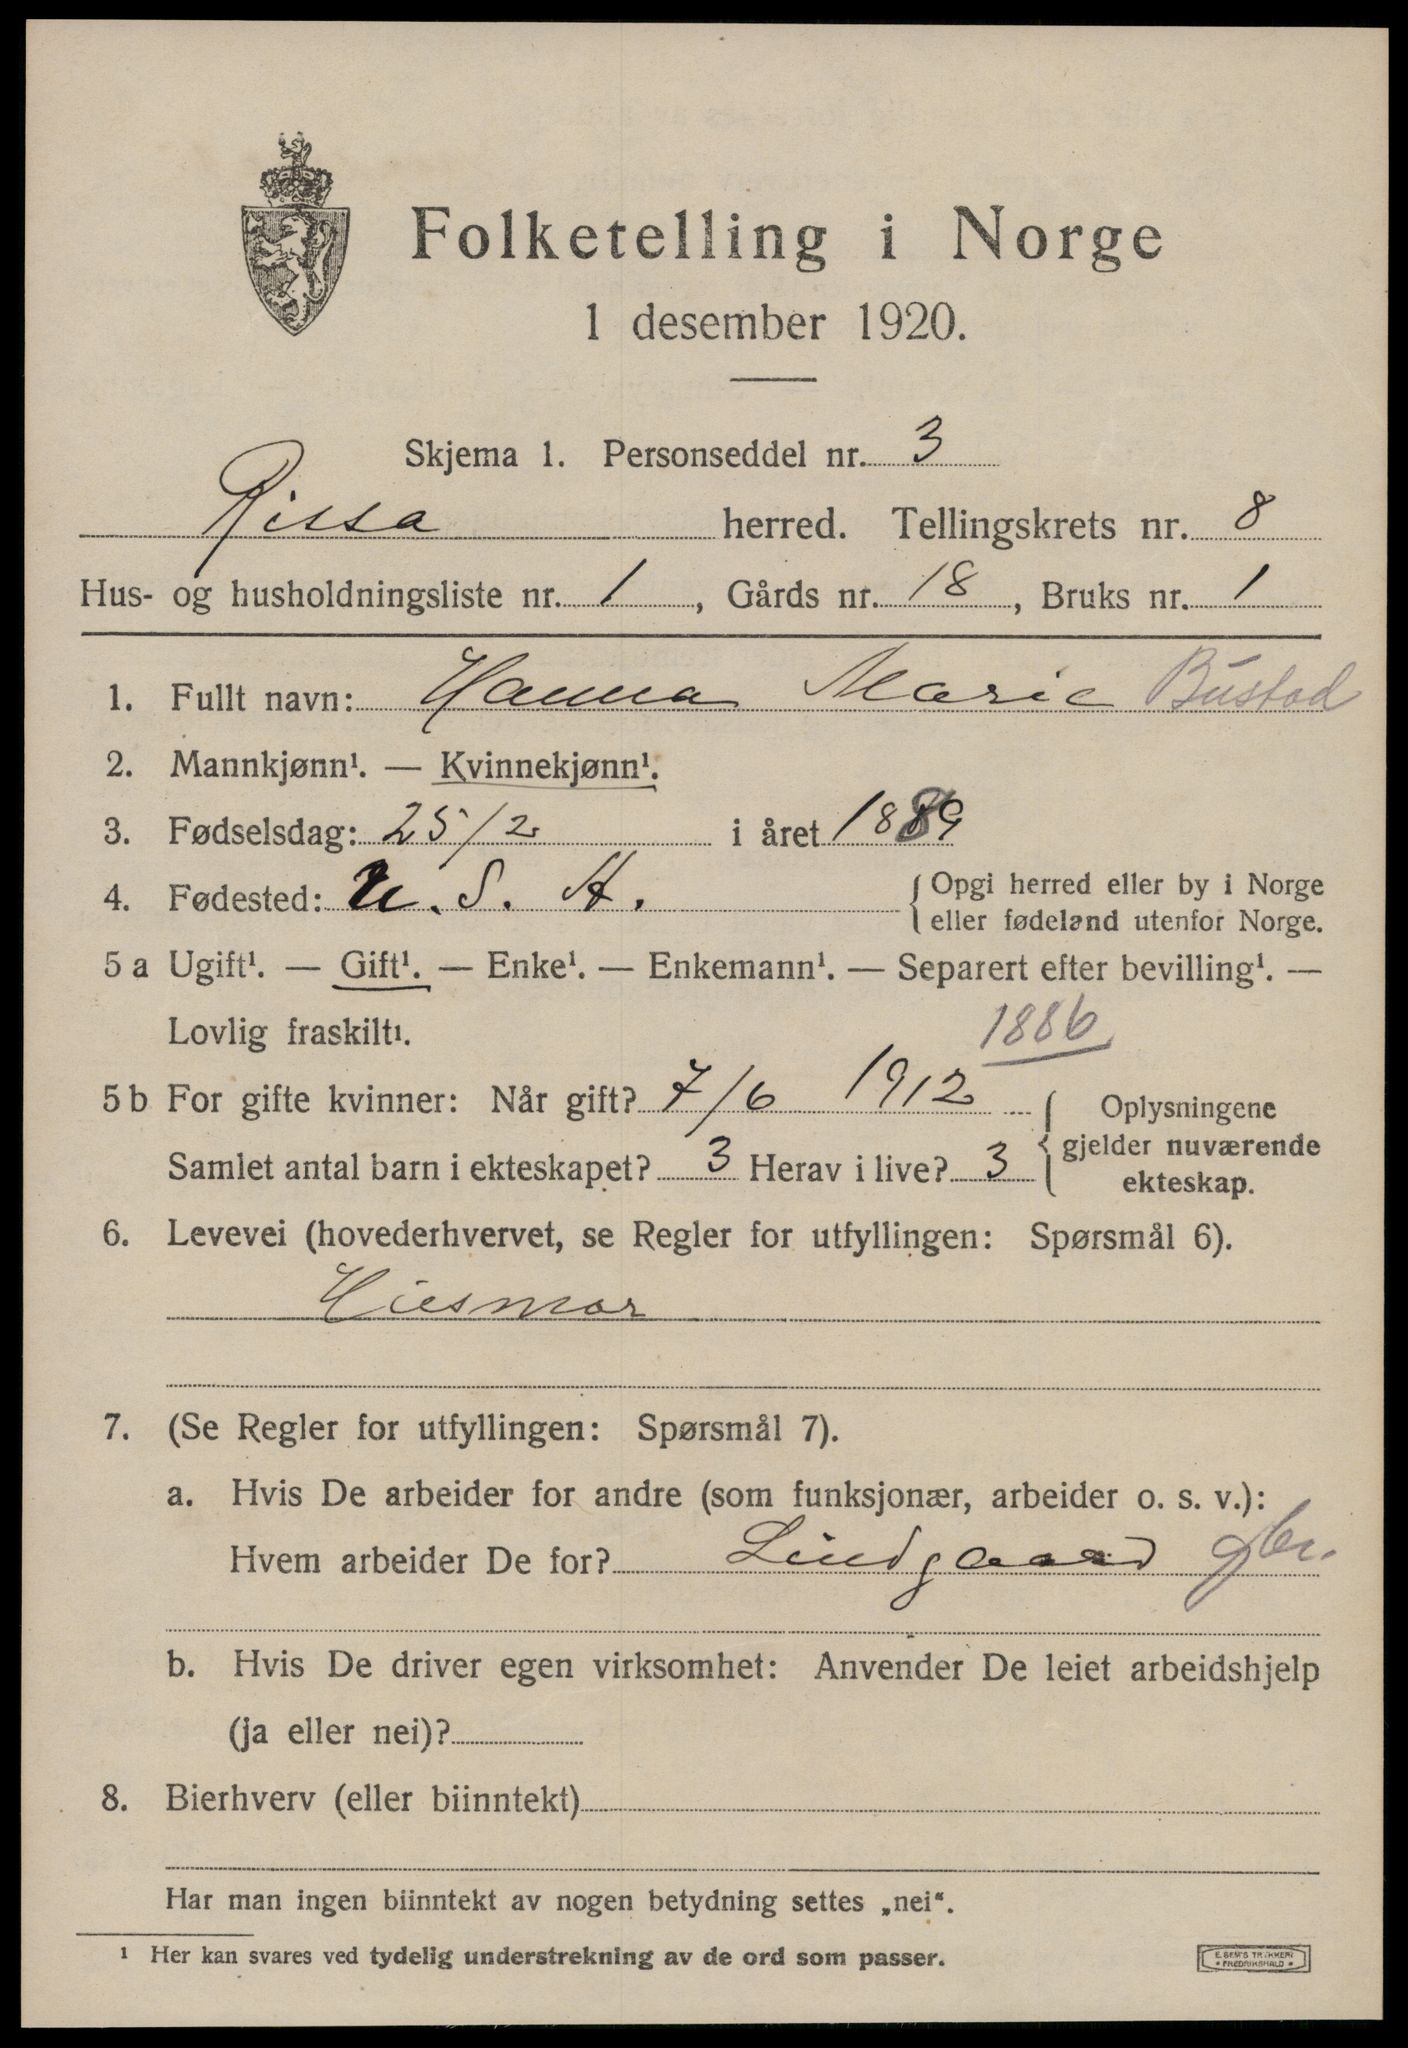 Folketelling i Norge
1 desember 1920.
Skjema 1. Personseddel nr. 3
Rissa herred. Tellingskrets nr. 8
Hus- og husholdningsliste nr. 1, Gårds nr. 18, Bruks nr. 1
1. Fullt navn: Hanna Marie Bustad
2. Mannkjønn¹. — Kvinnekjønn¹.
3. Fødselsdag: 25/2 i året 1889
4. Fødested: U. S. A. Opgi herred eller by i Norge
eller fødeland utenfor Norge.
5 a Ugift¹. — Gift¹. — Enke¹. — Enkemann¹. — Separert efter bevilling¹. —
Lovlig fraskilt¹. 1886
5 b For gifte kvinner: Når gift? 7/6 1912 Oplysningene
gjelder nuværende
Samlet antal barn i ekteskapet? 3 Herav i live? 3
ekteskap.
6. Levevei (hovederhvervet, se Regler for utfyllingen: Spørsmål 6).
Husmor
7. (Se Regler for utfyllingen: Spørsmål 7).
a. Hvis De arbeider for andre (som funksjonær, arbeider o. s. v.):
Hvem arbeider De for? Lindgaard gbr.
b. Hvis De driver egen virksomhet: Anvender De leiet arbeidshjelp
(ja eller nei)?
8. Bierhverv (eller biinntekt)
Har man ingen biinntekt av nogen betydning settes „nei“.
¹ Her kan svares ved tydelig understrekning av de ord som passer.
E. SEM'S TRYKKERI
FREDRIKSHALD